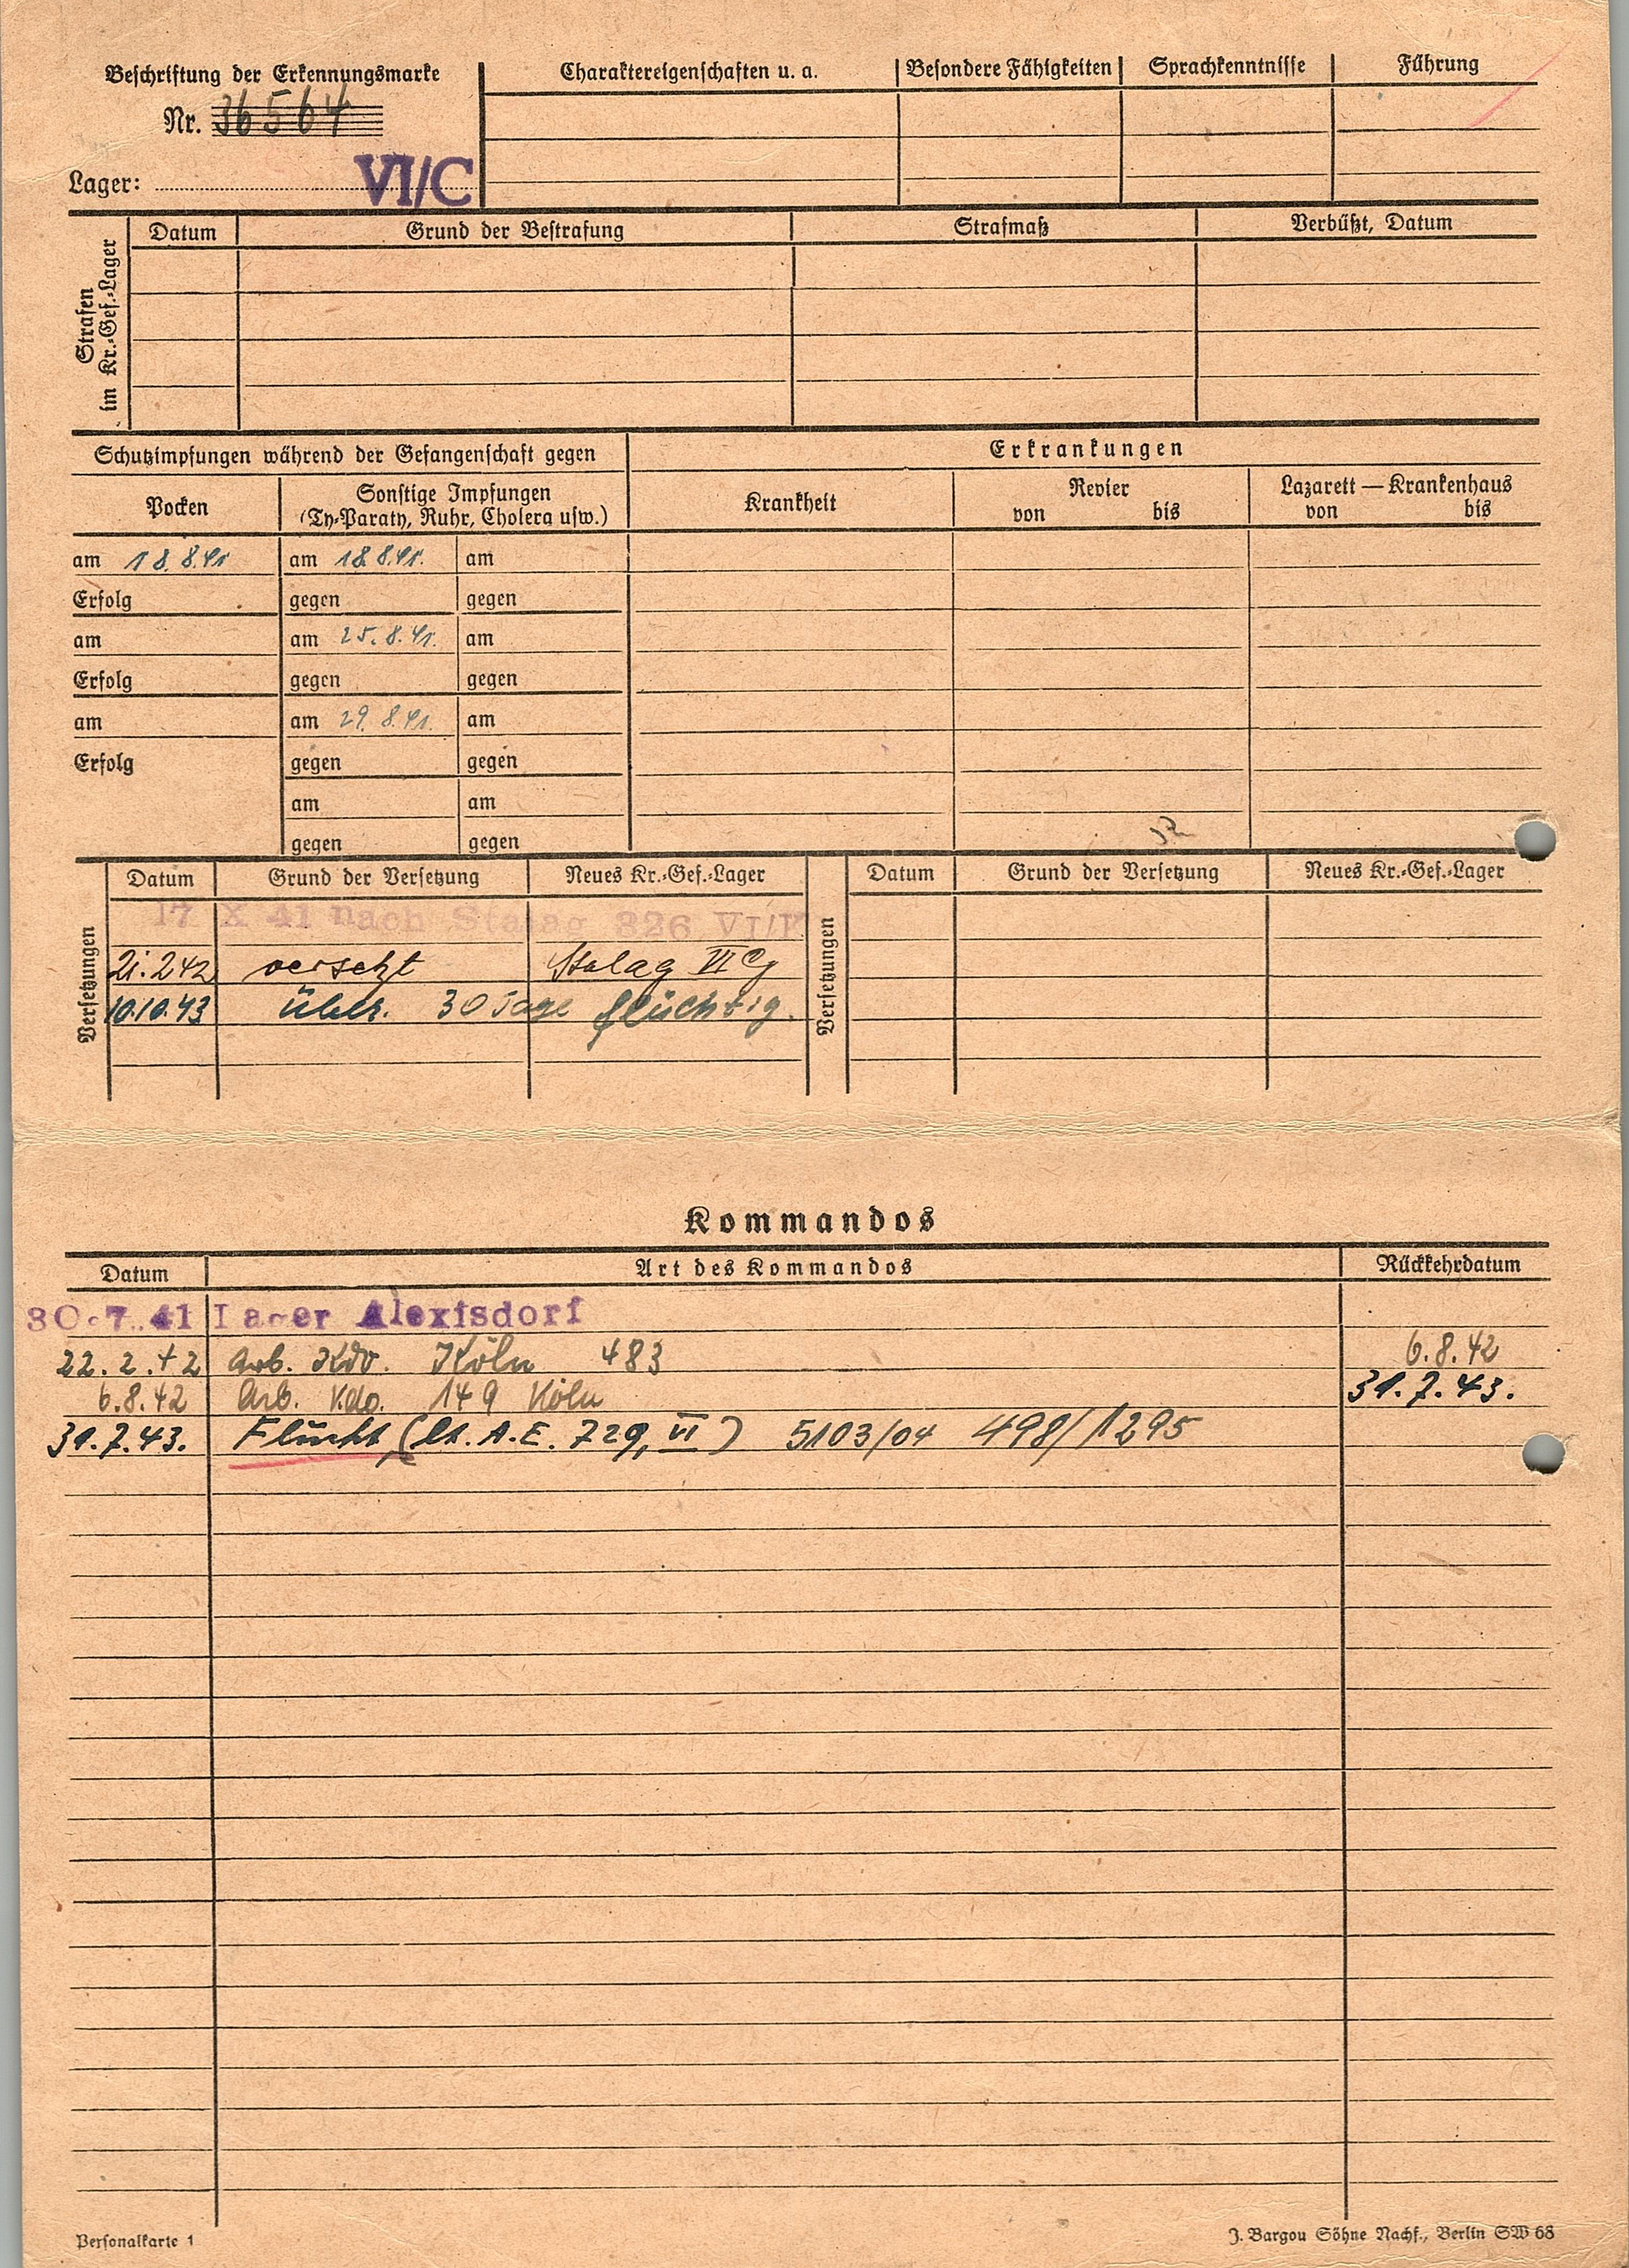 Beschriftung der Erkennungsmarke
Nr. 36564
Lager: VI/C
Charaktereigenschaften u. a. Besondere Fähigkeiten Sprachkenntnisse Führung
Strafen im Kr.-Gef.-Lager
Datum Grund der Bestrafung Strafmaß Verbüßt, Datum
Schutzimpfungen während der Gefangenschaft gegen Erkrankungen
Pocken Sonstige Impfungen (Ty-Paraty, Ruhr, Cholera usw.) Krankheit Revier von bis Lazarett — Krankenhaus von bis
am 18.8.41 am 18.8.41. am
Erfolg gegen gegen
am am 25.8.41. am
Erfolg gegen gegen
am am 29.8.41. am
Erfolg gegen gegen
am am
gegen gegen
Versetzungen Datum Grund der Versetzung Neues Kr.-Gef.-Lager Versetzungen Datum Grund der Versetzung Neues Kr.-Gef.-Lager
17 X 41 nach Stalag 326 VI/K
21.2.42 versetzt Stalag VI G
10.10.43 über 30 Tage flüchtig.
Kommandos
Datum Art des Kommandos Rückkehrdatum
30.7.41 Lager Alexisdorf
22.2.42 Arb. Kdo. Köln 483 6.8.42
6.8.42 Arb. Kdo. 149 Köln 31.7.43.
31.7.43. Flucht (lt. A.E. 729, VI) 5103/04 498/1295
Personalkarte 1
J. Bargou Söhne Nachf., Berlin SW 68